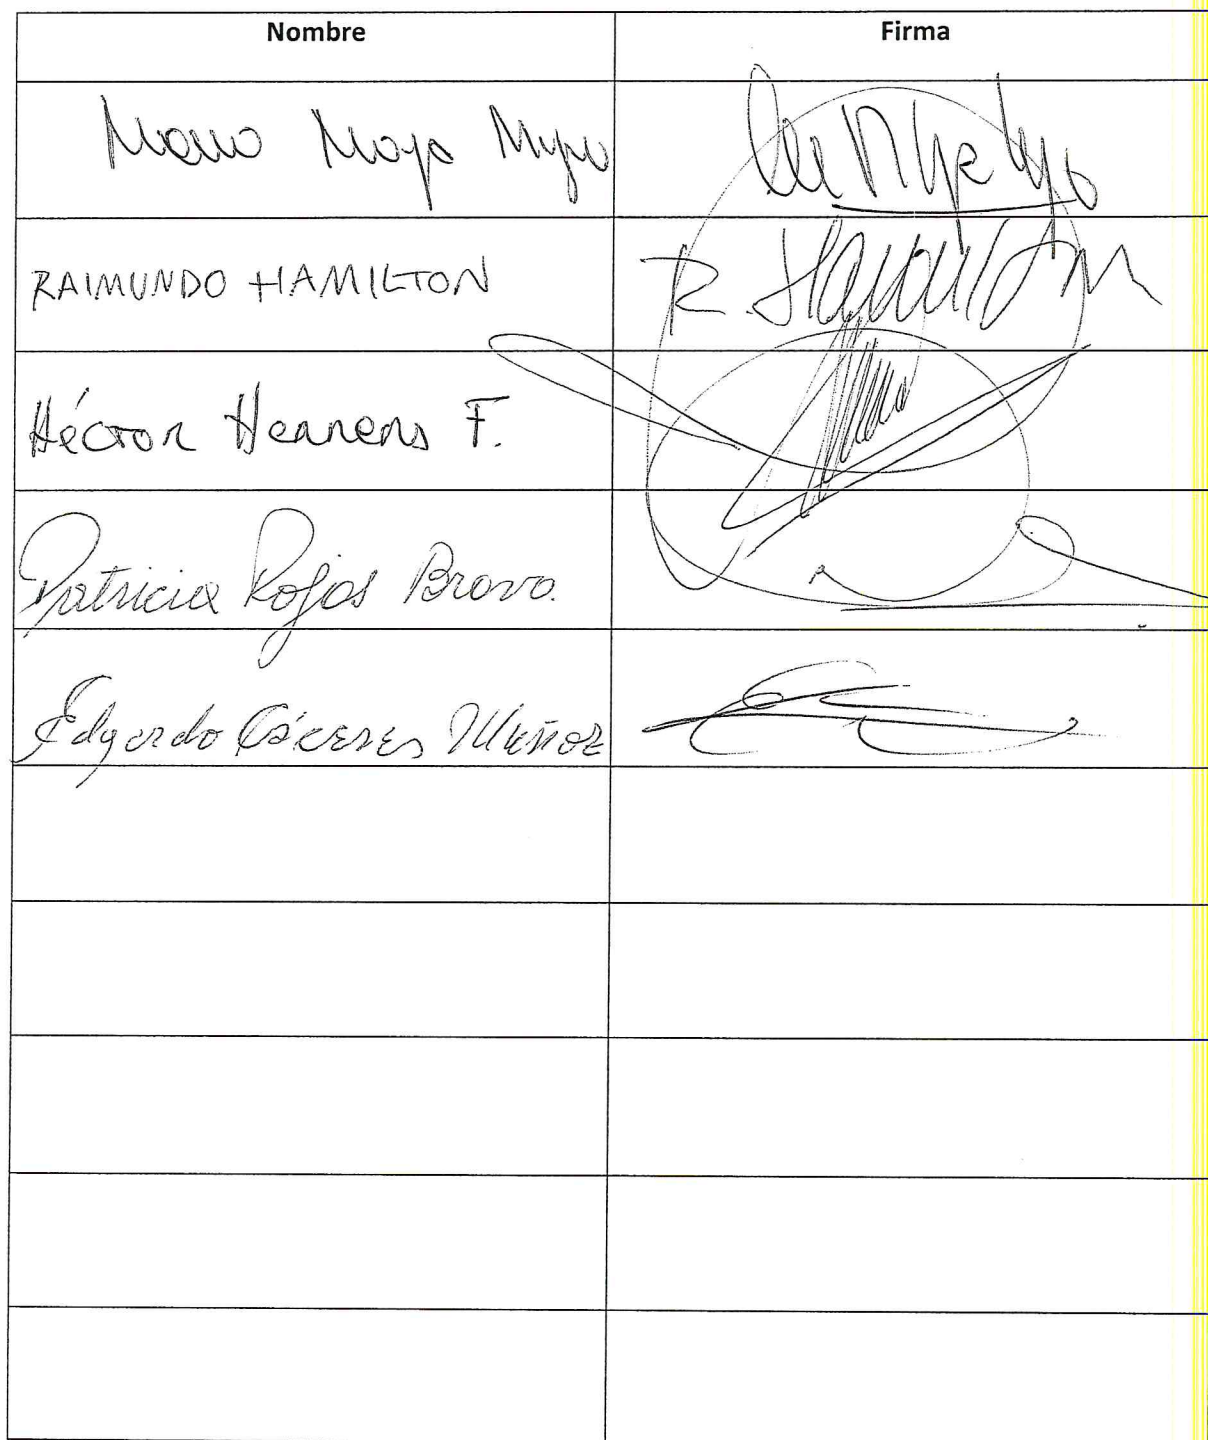 Nombre Firma
Mario Moya
RAIMUNDO HAMILTON R. Hamilton
Héctor Herrera F.
Patricia Rojas Bravo.
Edgardo Cáceres Muñoz